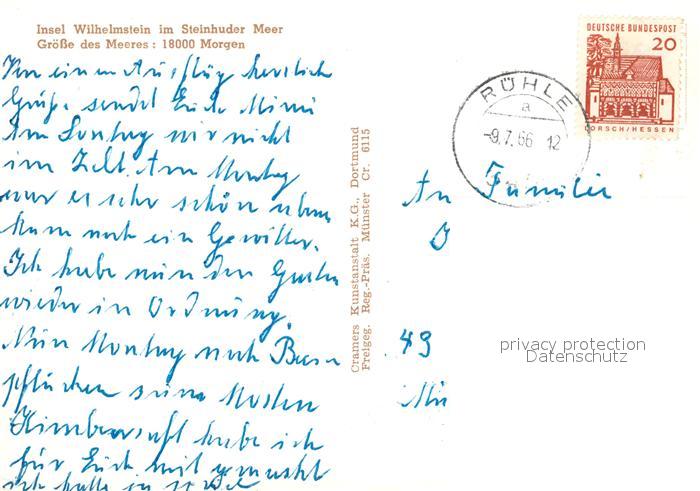 Insel Wilhelmstein im Steinhuder Meer
Größe des Meeres: 18000 Morgen
Von einem Ausflug herzlich
Grüße sendet Euch Mimi
Am Sonntag wir nicht
im Zelt. Am Montag
war es sehr schön
kam noch ein Gewitter.
Ich habe nun den Garten
wieder in Ordnung.
Nun Montag noch
pflücken
Himbeersaft habe ich
für Euch mit gemacht
ich
Cramers Kunstanstalt K.G., Dortmund
Freigeg. Reg.-Präs. Münster Cr. 6115
DEUTSCHE BUNDESPOST
20
LORSCH/HESSEN
RÜHLE
a
-9.7.66 12
An Familie
49
privacy protection
Datenschutz